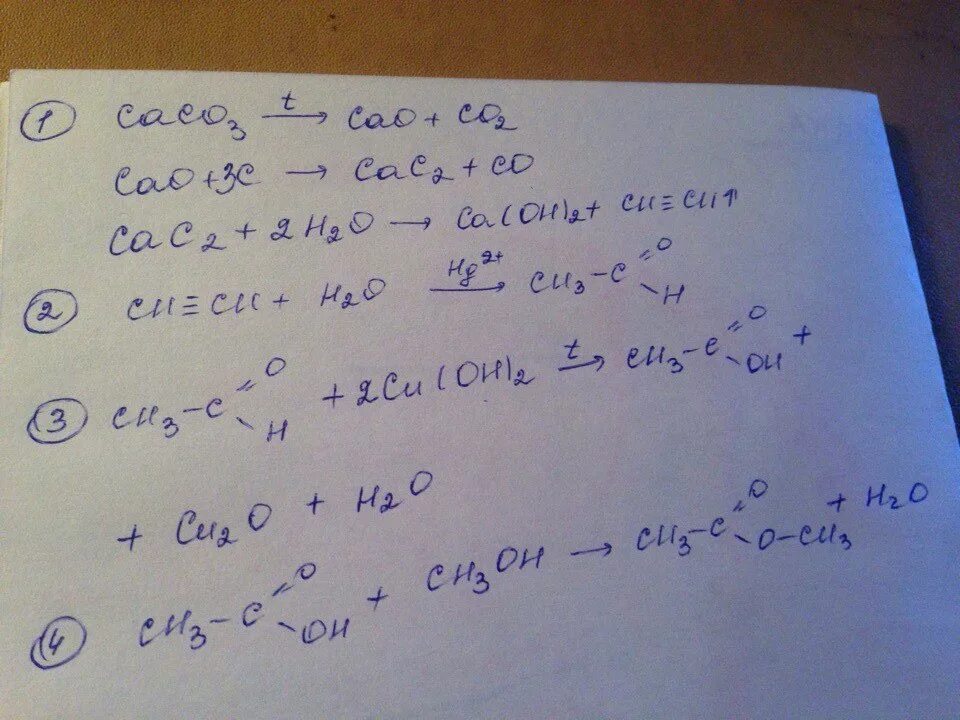 ① CaCO₃ —t→ CaO + CO₂
CaO + 3C → CaC₂ + CO
CaC₂ + 2H₂O → Ca(OH)₂ + CH≡CH↑
② CH≡CH + H₂O —Hg²⁺→ CH₃–C(=O)–H
③ CH₃–C(=O)–H + 2Cu(OH)₂ —t→ CH₃–C(=O)–OH +
+ Cu₂O + H₂O
④ CH₃–C(=O)–OH + CH₃OH → CH₃–C(=O)–O–CH₃ + H₂O